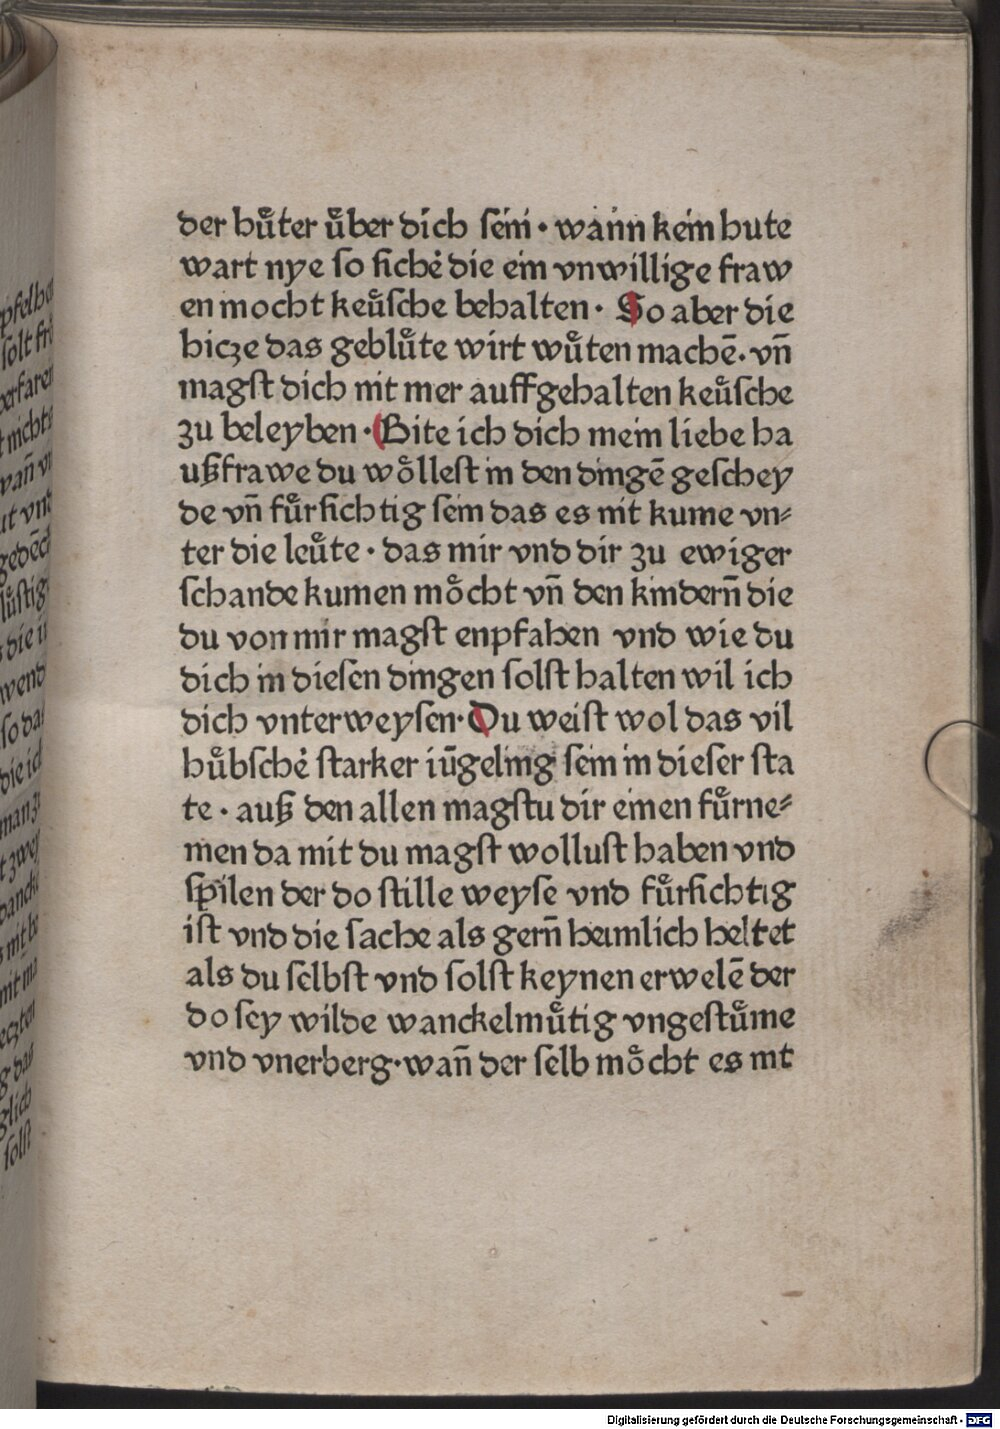 der huͤter uͤber dich sein · wann kein hute
wart nye so sichē die ein vnwillige fraw
en mocht keuͤsche behalten · So aber die
hicze das gebluͤte wirt wuͤten machē · vn̄
magst dich nit mer auffgehalten keuͤsche
zu beleyben · Bite ich dich mein liebe ha
ußfrawe du woͤllest in den dingē geschey
de vn̄ fuͤrsichtig sein das es nit kume vn⸗
ter die leuͤte · das mir vnd dir zu ewiger
schande kumen moͤcht vn̄ den kindern̄ die
du von mir magst enpfahen vnd wie du
dich in diesen dingen solst halten wil ich
dich vnterweysen · Du weist wol das vil
huͤbschē starker iūgeling sein in dieser sta
te · auß den allen magstu dir einen fuͤrne⸗
men da mit du magst wollust haben vnd
spilen der do stille weyse vnd fuͤrsichtig
ist vnd die sache als gern̄ heimlich heltet
als du selbst vnd solst keynen erwelē der
do sey wilde wanckelmuͤtig vngestuͤme
vnd vnerberg · wan̄ der selb moͤcht es nit
Digitalisierung gefördert durch die Deutsche Forschungsgemeinschaft - DFG